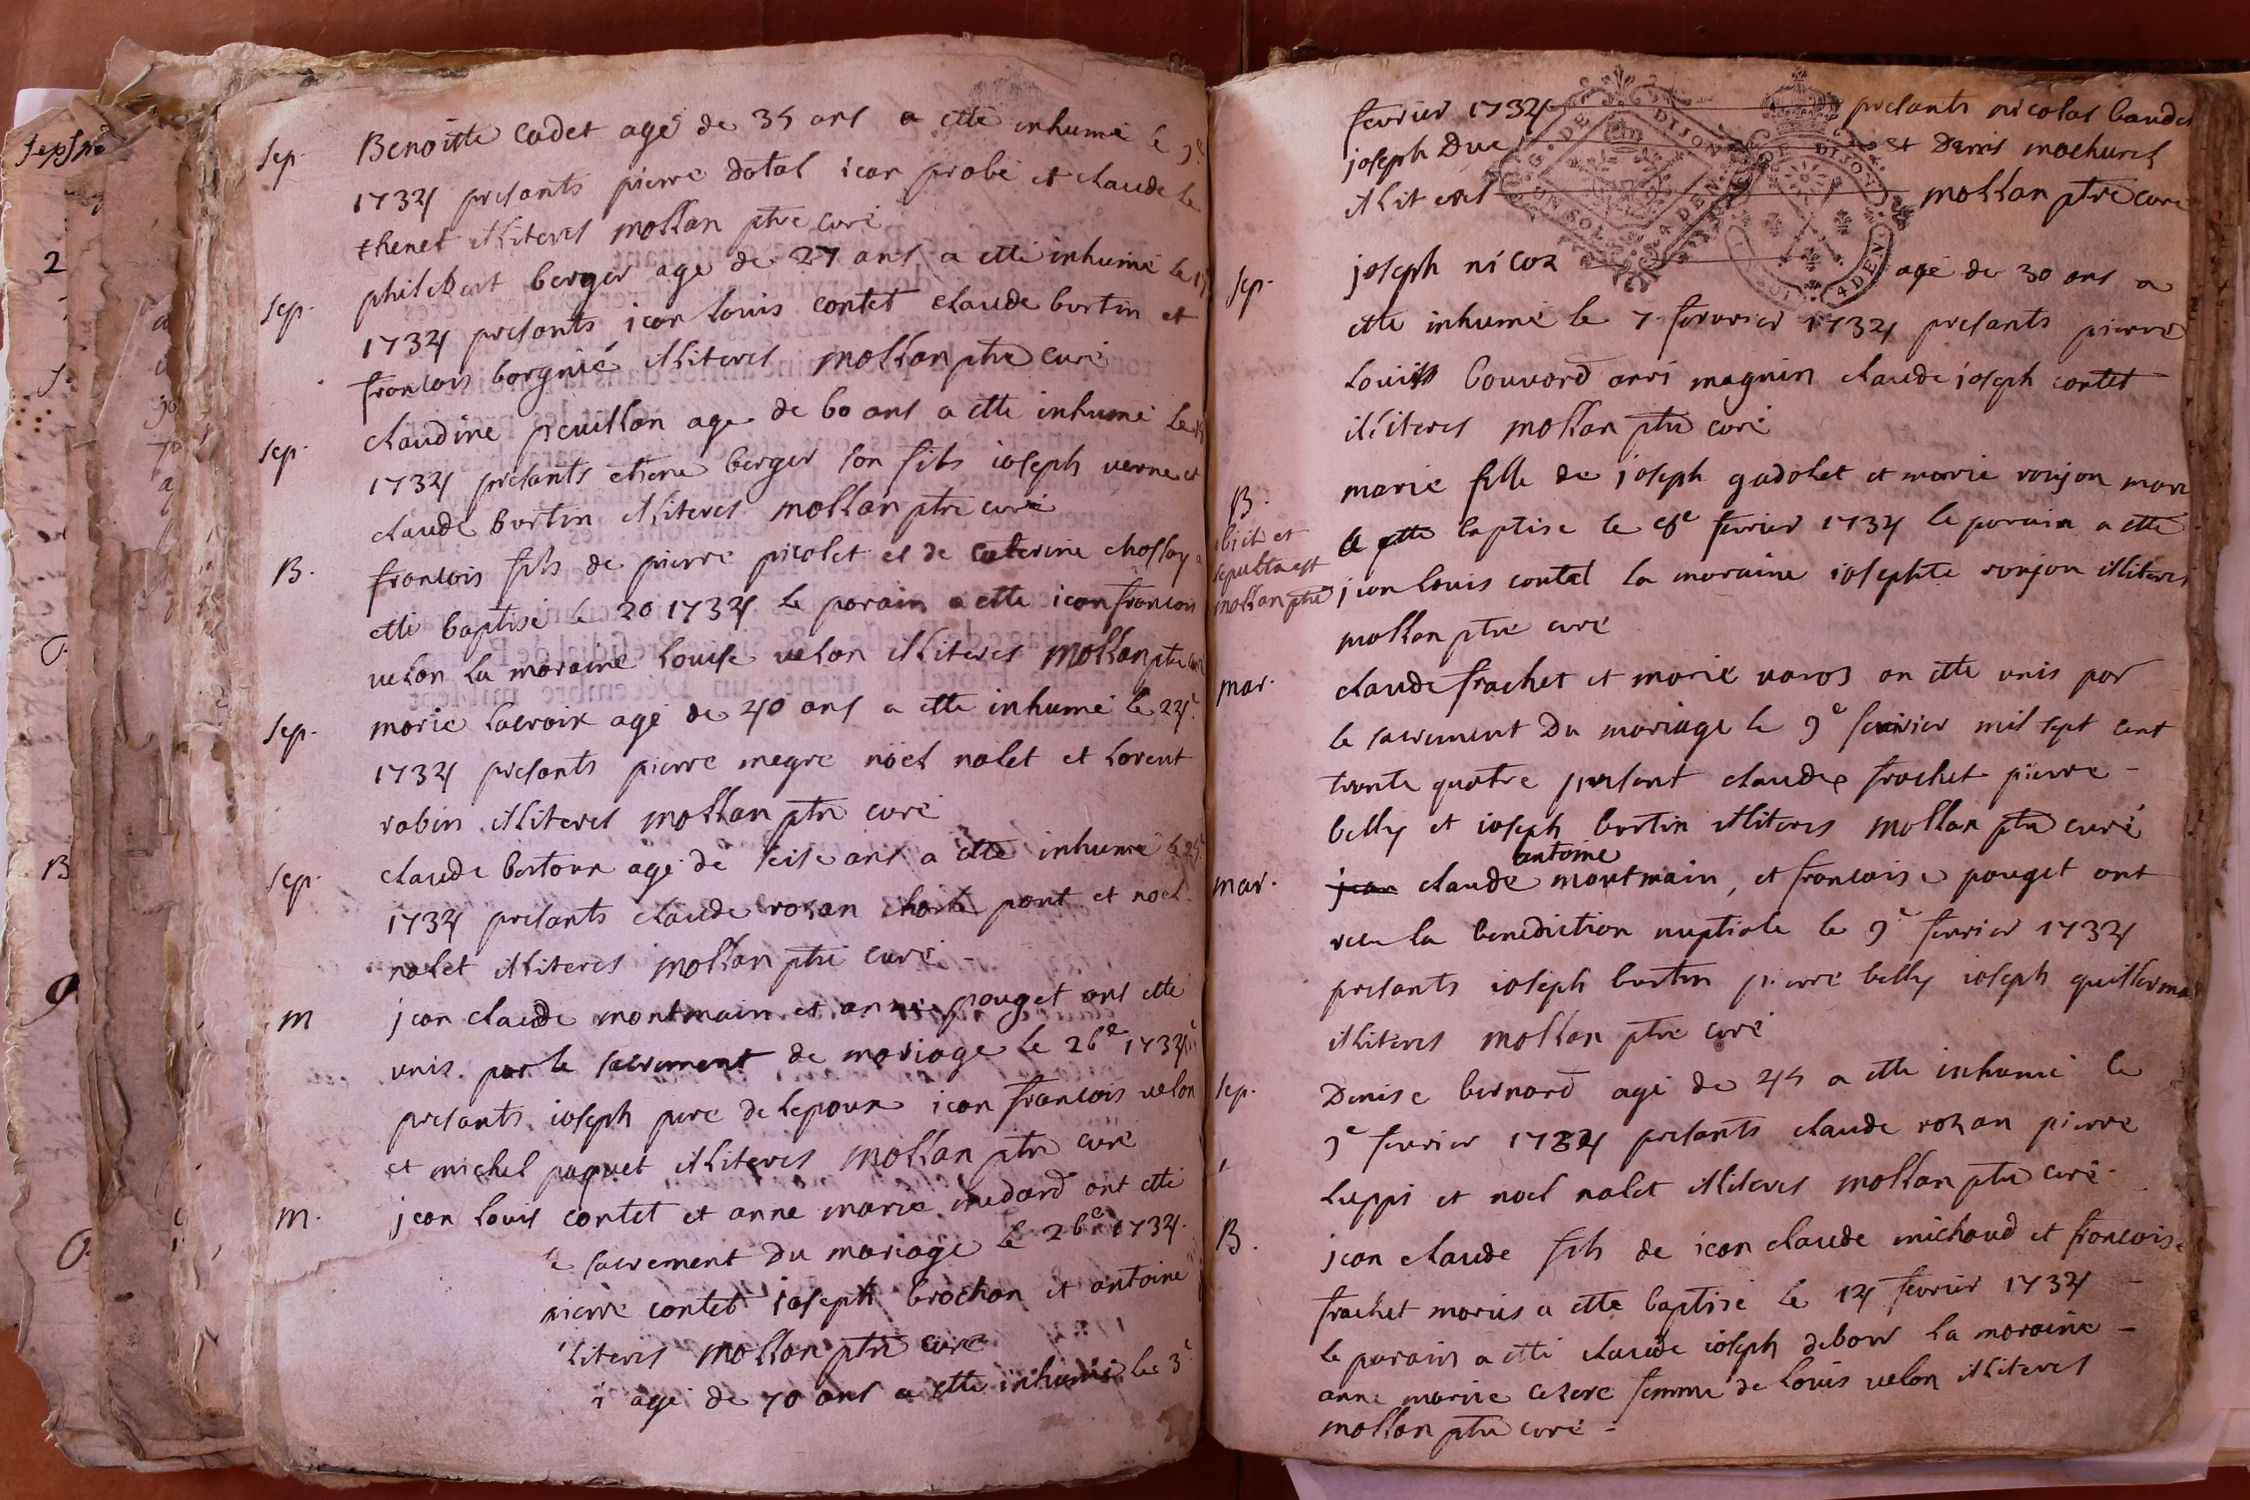 Sep. Benoitte Cadet agé de 35 ans a etté inhumé le 9e
1734 presants pierre datal jean probé et claude le
thenet illiteres mollan ptre curé
Sep. philebert berger age de 27 ans a etté inhumé le
1734 presants jean louis contet claude burtin et
francois borgnié illiteres mollan ptre curé
Sep. claudine peuillon age de 60 ans a etté inhumé le
1734 presants etiene berger son fils ioseph verne et
claude burtin illiteres mollan ptre curé
B. francois fils de pierre picolet et de caterine chossay a
etté baptisé le 20 1734 le parain a etté jean francois
velon la maraine louise velon illiteres mollan ptre curé
Sep. marie lacroix agé de 40 ans a etté inhumé le 24e
1734 presants pierre megre noel nalet et lorent
robin illiteres mollan ptre curé
Sep. claude bertoux agé de seise ans a etté inhumé le 25e
1734 presants claude rozan charle pont et noel
nalet illiteres mollan ptre curé
M jean claude montmain et anne pouget ont etté
unis par le sacrement de mariage le 26e 1734
presants ioseph pere de lepoux jean francois velon
et michel paquet illiteres mollan ptre curé
M. jean louis contet et anne marie medard ont etté
le sacrement du mariage le 26e 1734
pierre contet ioseph brochon et antoine
literes mollan ptre curé
agé de 70 ans a etté inhumé le 3e
fevrier 1734 presants nicolas baudet
joseph Duc et Denis mochuret
illiteres mollan ptre curé
G. DE DIJON
UN SOL 4 DEN
DE DIJON
4 DEN
Sep. joseph nicoz agé de 30 ans a
etté inhumé le 7 fevrier 1734 presants pierre
louis bouvard anri magnin claude joseph contet
illiteres mollan ptre curé
B. marie fille de joseph gadolet et marie roujon mari
a etté baptise le 8e fevrier 1734 le parain a etté
obiit et
sepulta est
mollan ptre
jean louis contet la maraine iosephte roujon illiteres
mollan ptre curé
mar. claude frachet et marie varoz on etté unis par
le sacrement Du mariage le 9e fevrier mil sept cent
trante quatre presant claude frachet pierre -
belly et ioseph burtin illiteres mollan ptre curé
antoine
mar. jean claude montmain, et francoise pouget ont
receu la benediction nuptiale le 9e fevrier 1734
presants ioseph burtin pierre belly ioseph guillerma
illiteres mollan ptre curé
Sep. Denise bernard agé de 45 a etté inhumé le
9e fevrier 1734 presants claude rozan pierre
luppi et noel nalet illiteres mollan ptre curé
B. jean claude fils de jean claude michaud et francoise
frachet mariés a etté baptisé le 14 fevrier 1734
le parain a etté claude ioseph debour la maraine -
anne marie cezere femme de louis velon illiteres
mollan ptre curé -